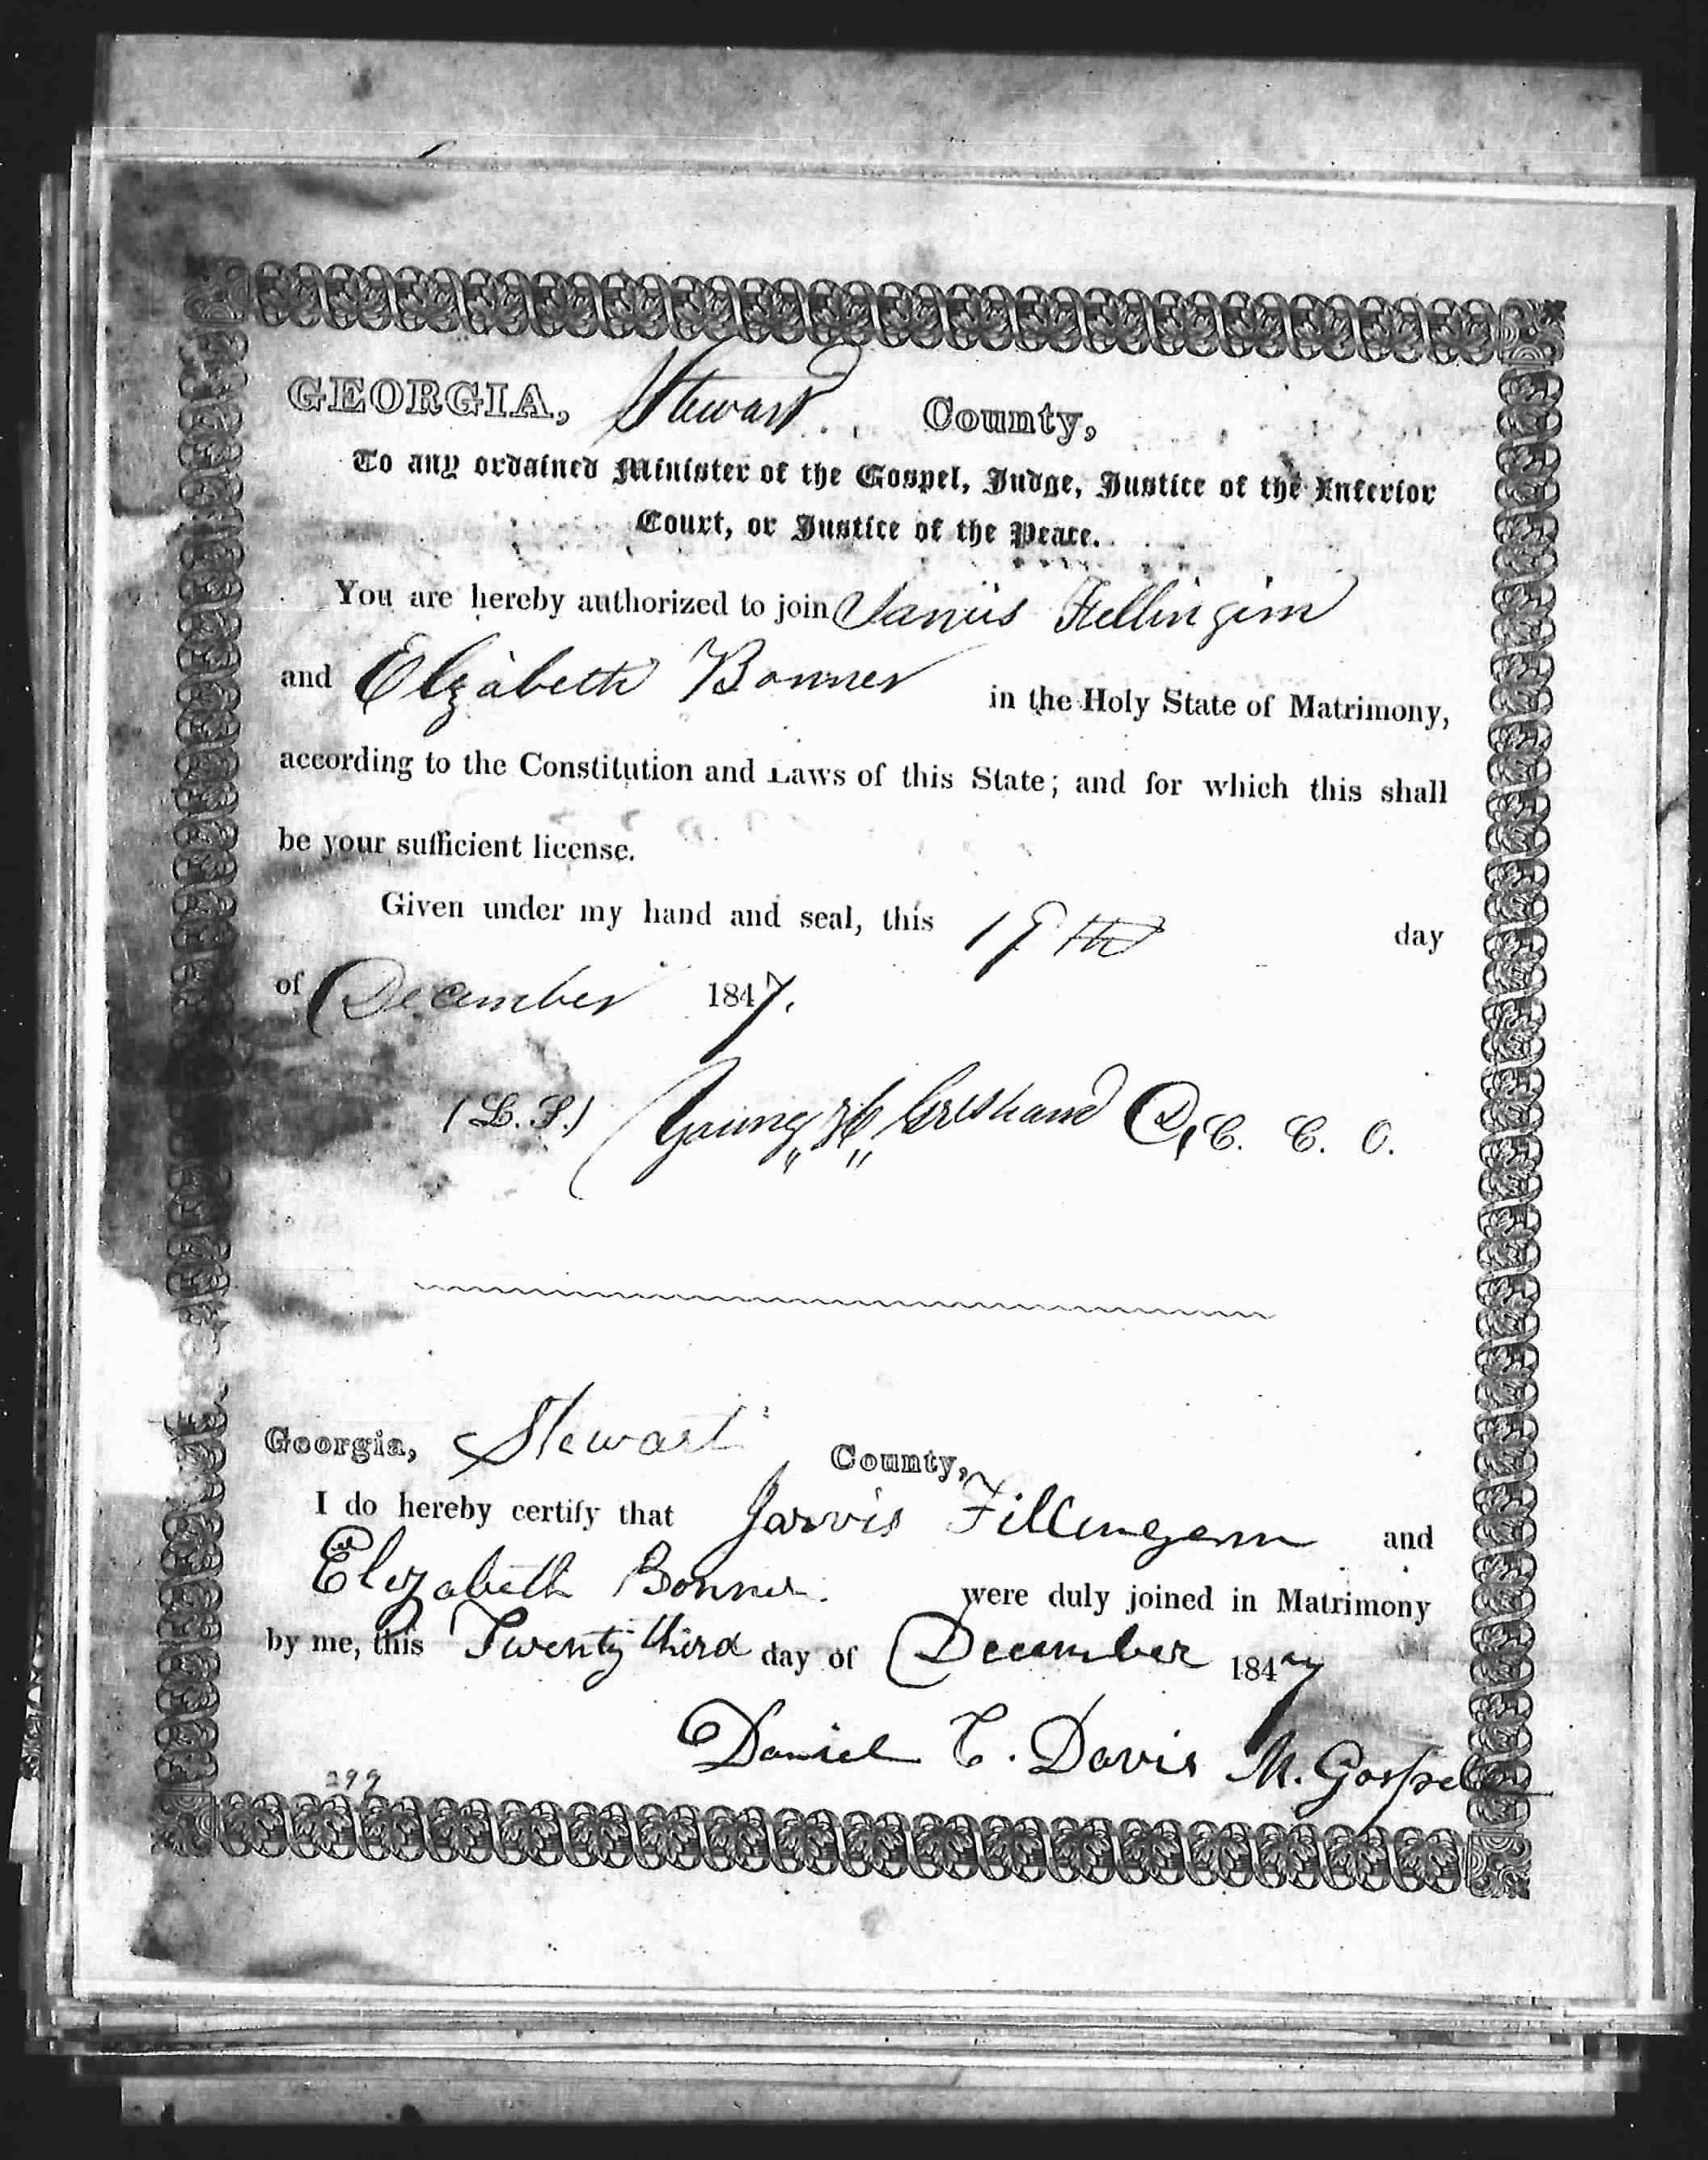 GEORGIA, Stewart County,
To any ordained Minister of the Gospel, Judge, Justice of the Inferior
Court, or Justice of the Peace.
You are hereby authorized to join Jarvis Fillingim
and Elizabeth Bonner in the Holy State of Matrimony,
according to the Constitution and Laws of this State; and for which this shall
be your sufficient license.
Given under my hand and seal, this 19th day
of December 1847.
(L.S.) Young H Gresham D, C. C. O.
Georgia, Stewart County,
I do hereby certify that Jarvis Fillengem and
Elizabeth Bonner were duly joined in Matrimony
by me, this Twenty third day of December 1847
Daniel C. Davis M. Gospel
299